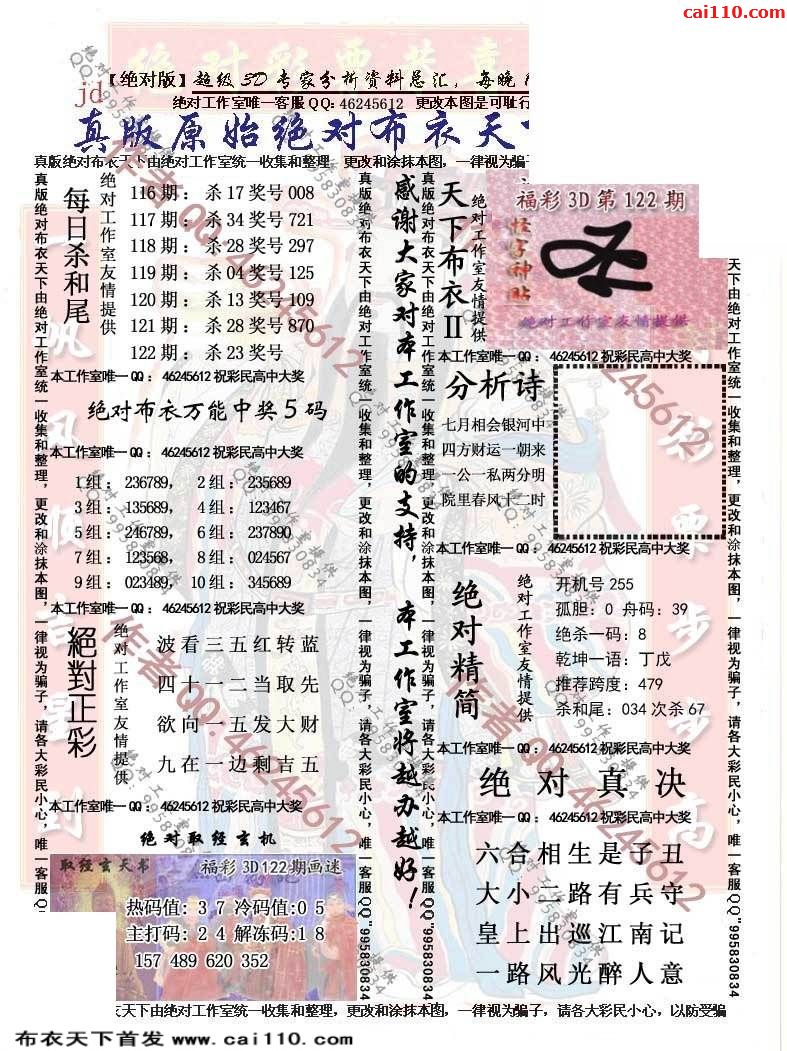 cai110.com
【绝对版】超级3D专家分析资料总汇，每晚
jd
绝对工作室唯一客服QQ:46245612 更改本图是可耻行
真版原始绝对布衣天
真版绝对布衣天下由绝对工作室统一收集和整理，更改和涂抹本图，一律视为骗
真版绝对布衣天下由绝对工作室统一收集和整理，更改和涂抹本图，一律视为骗子，请各大彩民小心，唯一客服QQ
每日杀和尾
绝对工作室友情提供
116期：杀17奖号008
117期：杀34奖号721
118期：杀28奖号297
119期：杀04奖号125
120期：杀13奖号109
121期：杀28奖号870
122期：杀23奖号
本工作室唯一QQ：46245612祝彩民高中大奖
绝对布衣万能中奖5码
本工作室唯一QQ：46245612祝彩民高中大奖
1组：236789， 2组：235689
3组：135689， 4组：123467
5组：246789， 6组：237890
7组：123568， 8组：024567
9组：023489， 10组：345689
本工作室唯一QQ：46245612祝彩民高中大奖
絕對正彩
绝对工作室友情提供
波看三五红转蓝
四十一二当取先
欲向一五发大财
九在一边剩吉五
本工作室唯一QQ：46245612祝彩民高中大奖
绝对取经玄机
取经玄天书
福彩3D122期画迷
热码值：3 7冷码值:0 5
主打码：2 4 解冻码:1 8
157 489 620 352
真版绝对布衣天下由绝对工作室统一收集和整理，更改和涂抹本图，一律视为骗子，请各大彩民小心，唯一客服QQ"995830834
感谢大家对本工作室的支持，本工作室将越办越好！
真版绝对布衣天下由绝对工作室统一收集和整理，更改和涂抹本图，一律视为骗子，请各大彩民小心，唯一客服QQ"995830834
天下布衣II
绝对工作室友情提供
福彩3D第122期
怪字神贴
绝对工作室友情提供
本工作室唯一QQ：46245612祝彩民高中大奖
分析诗
七月相会银河中
四方财运一朝来
一公一私两分明
院里春风十二时
本工作室唯一QQ：46245612祝彩民高中大奖
绝对精简
绝对工作室友情提供
开机号255
孤胆：0 舟码：39
绝杀一码：8
乾坤一语：丁戊
推荐跨度：479
杀和尾：034次杀67
本工作室唯一QQ：46245612祝彩民高中大奖
绝对真决
本工作室唯一QQ：46245612祝彩民高中大奖
六合相生是子丑
大小二路有兵守
皇上出巡江南记
一路风光醉人意
天下由绝对工作室统一收集和整理，更改和涂抹本图，一律视为骗子，请各大彩民小心，唯一客服QQ"995830834
衣天下由绝对工作室统一收集和整理，更改和涂抹本图，一律视为骗子，请各大彩民小心，以防受骗
作者QQ:46245612
绝对工作室提供
QQ:995830834
布衣天下首发 www.cai110.com